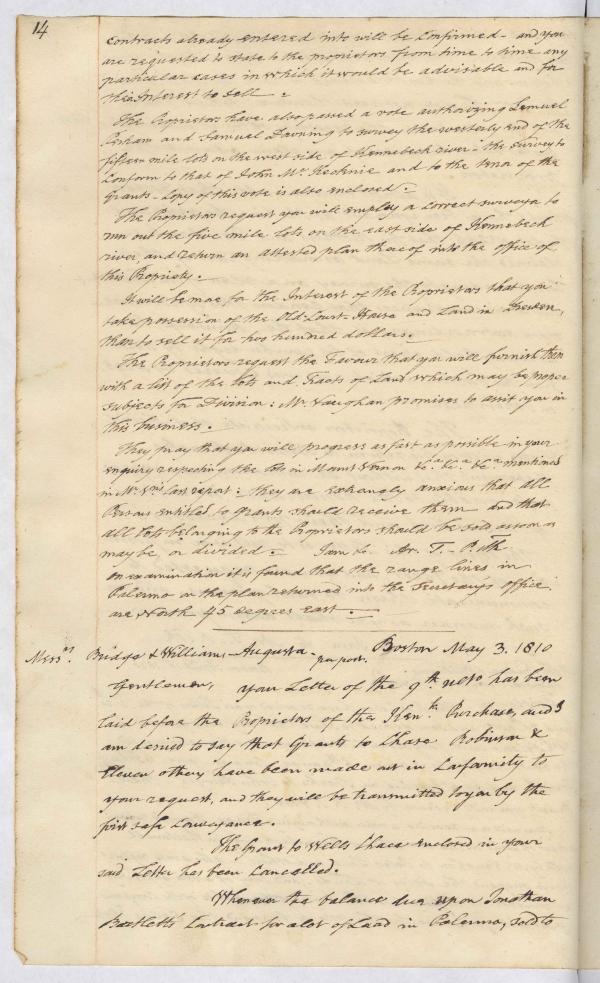 14
contracts already entered into will be confirmed – and you
are requested to state to the proprietors from time to time any
particular cases in which it would be advisable and for
their Interest to sell.
The Proprietors have also passed a vote authorizing Lemuel
Perham and Samuel Downing to survey the westerly end of the
fifteen mile lots on the west side of Kennebeck river – the survey to
conform to that of John Mc. Kechnie and to the tenor of the
Grants – Copy of this vote is also enclosed.
The Proprietors request you will employ a correct surveyor to
run out the five mile lots on the east side of Kennebeck
river, and return an attested plan thereof into the office of
this Propriety.
It will be more for the Interest of the Proprietors that you
take possession of the Old Court-House and Land in Dresden,
than to sell it for two hundred dollars.
The Proprietors request the Favour that you will furnish them
with a list of the lots and Tracts of Land which may be proper
subjects for Division: Mr. Vaughan promises to assist you in
this business.
They pray that you will progress as fast as possible in your
enquiry respecting the lots in Mount Vernon &c.a &c.a &c.a mentioned
in Mr. V's last report: they are extremely anxious that all
Persons entitled to grants should receive them and that
all lots belonging to the Proprietors should be sold as soon as
may be, or divided. I am &c. Ar. T.
on examination it is found that the range lines in
Palermo on the plan returned into the Secretary's office
are North 45 degrees east.
Messrs. Bridge & Williams, – Augusta – per post. Boston May 3. 1810
Gentlemen, your Letter of the 9th. ulto has been
laid before the Proprietors of the Kenk. Purchase, and I
am desired to say that Grants to Chase Robinson &
Eleven others have been made out in Conformity to
your request, and they will be transmitted to you by the
first safe Conveyance.
The Grant to Wells Chace enclosed in your
said Letter has been Cancelled.
Whenever the balance due upon Jonathan
Bartlett's Contract for a lot of Land in Palermo, sold to